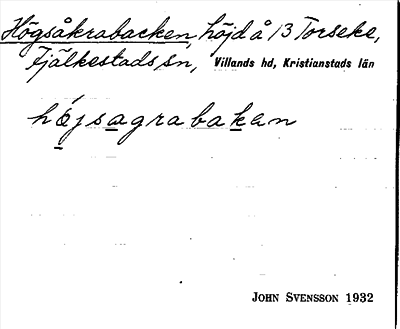 Högsåkrabacken, höjd å 13 Torseke,
Fjälkestads sn, Villands hd, Kristianstads län
höjsagrabaken
JOHN SVENSSON 1932